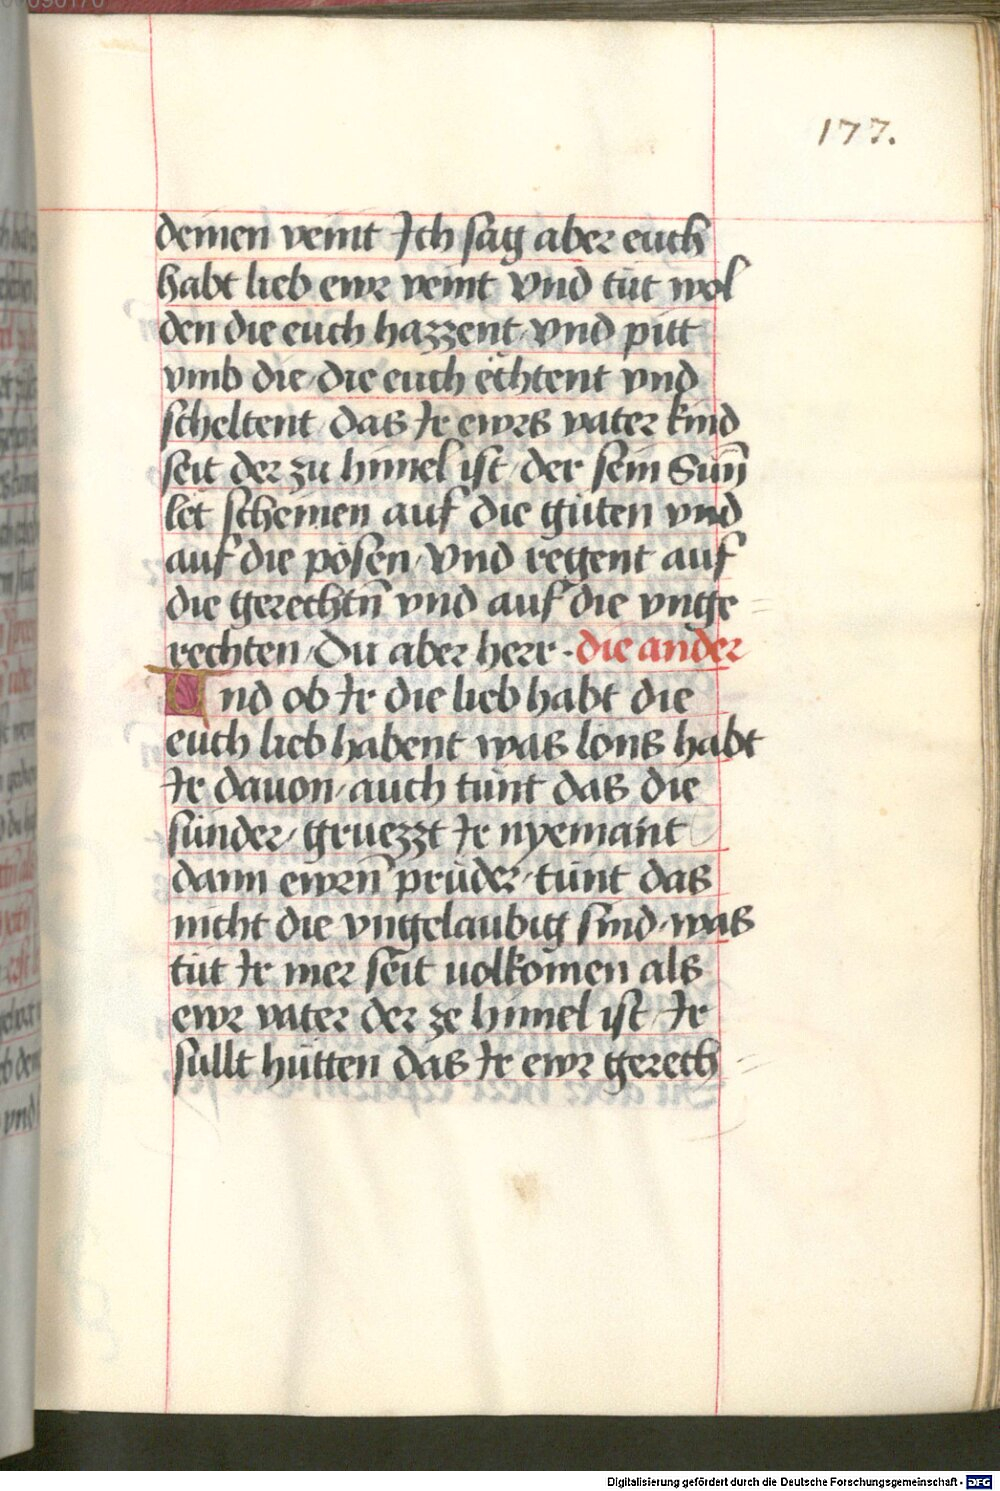 177.
deinen veint Ich sag aber euch
habt lieb ewr veint Vnd tůt wol
den die euch hazzent, vnd pitt
vmb die, die euch ëchtent vnd
scheltent, das Ir ewrs vater kind
seit der zu himel ist, der sein Sun̄
let scheinen auf die gůten vnd
auf die pösen, Vnd regent auf
die gerechtn̄ vnd auf die vnge
rechten, Du aber herr · die ander
Und ob Ir die lieb habt die
euch lieb habent was lons habt
Ir dauon, auch tůnt das die
sünder, gruezzt Ir nyemant
dann ewrn̄ prüder, tůnt das
nicht die vngelaubig sind, was
tůt Ir mer seit uolkomen als
ewr vater der ze himel ist, Ir
süllt hütten das Ir ewr gerech
Digitalisierung gefördert durch die Deutsche Forschungsgemeinschaft - DFG